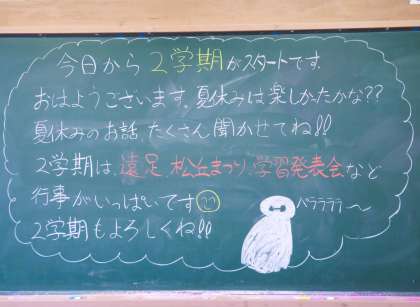 今日から 2学期がスタートです.
おはようございます。夏休みは楽しかたかな??
夏休みのお話 たくさん聞かせてね!!
2学期は、遠足 松丘まつり 学習発表会など
行事がいっぱいです
2学期もよろしくね!!
バララララ〜